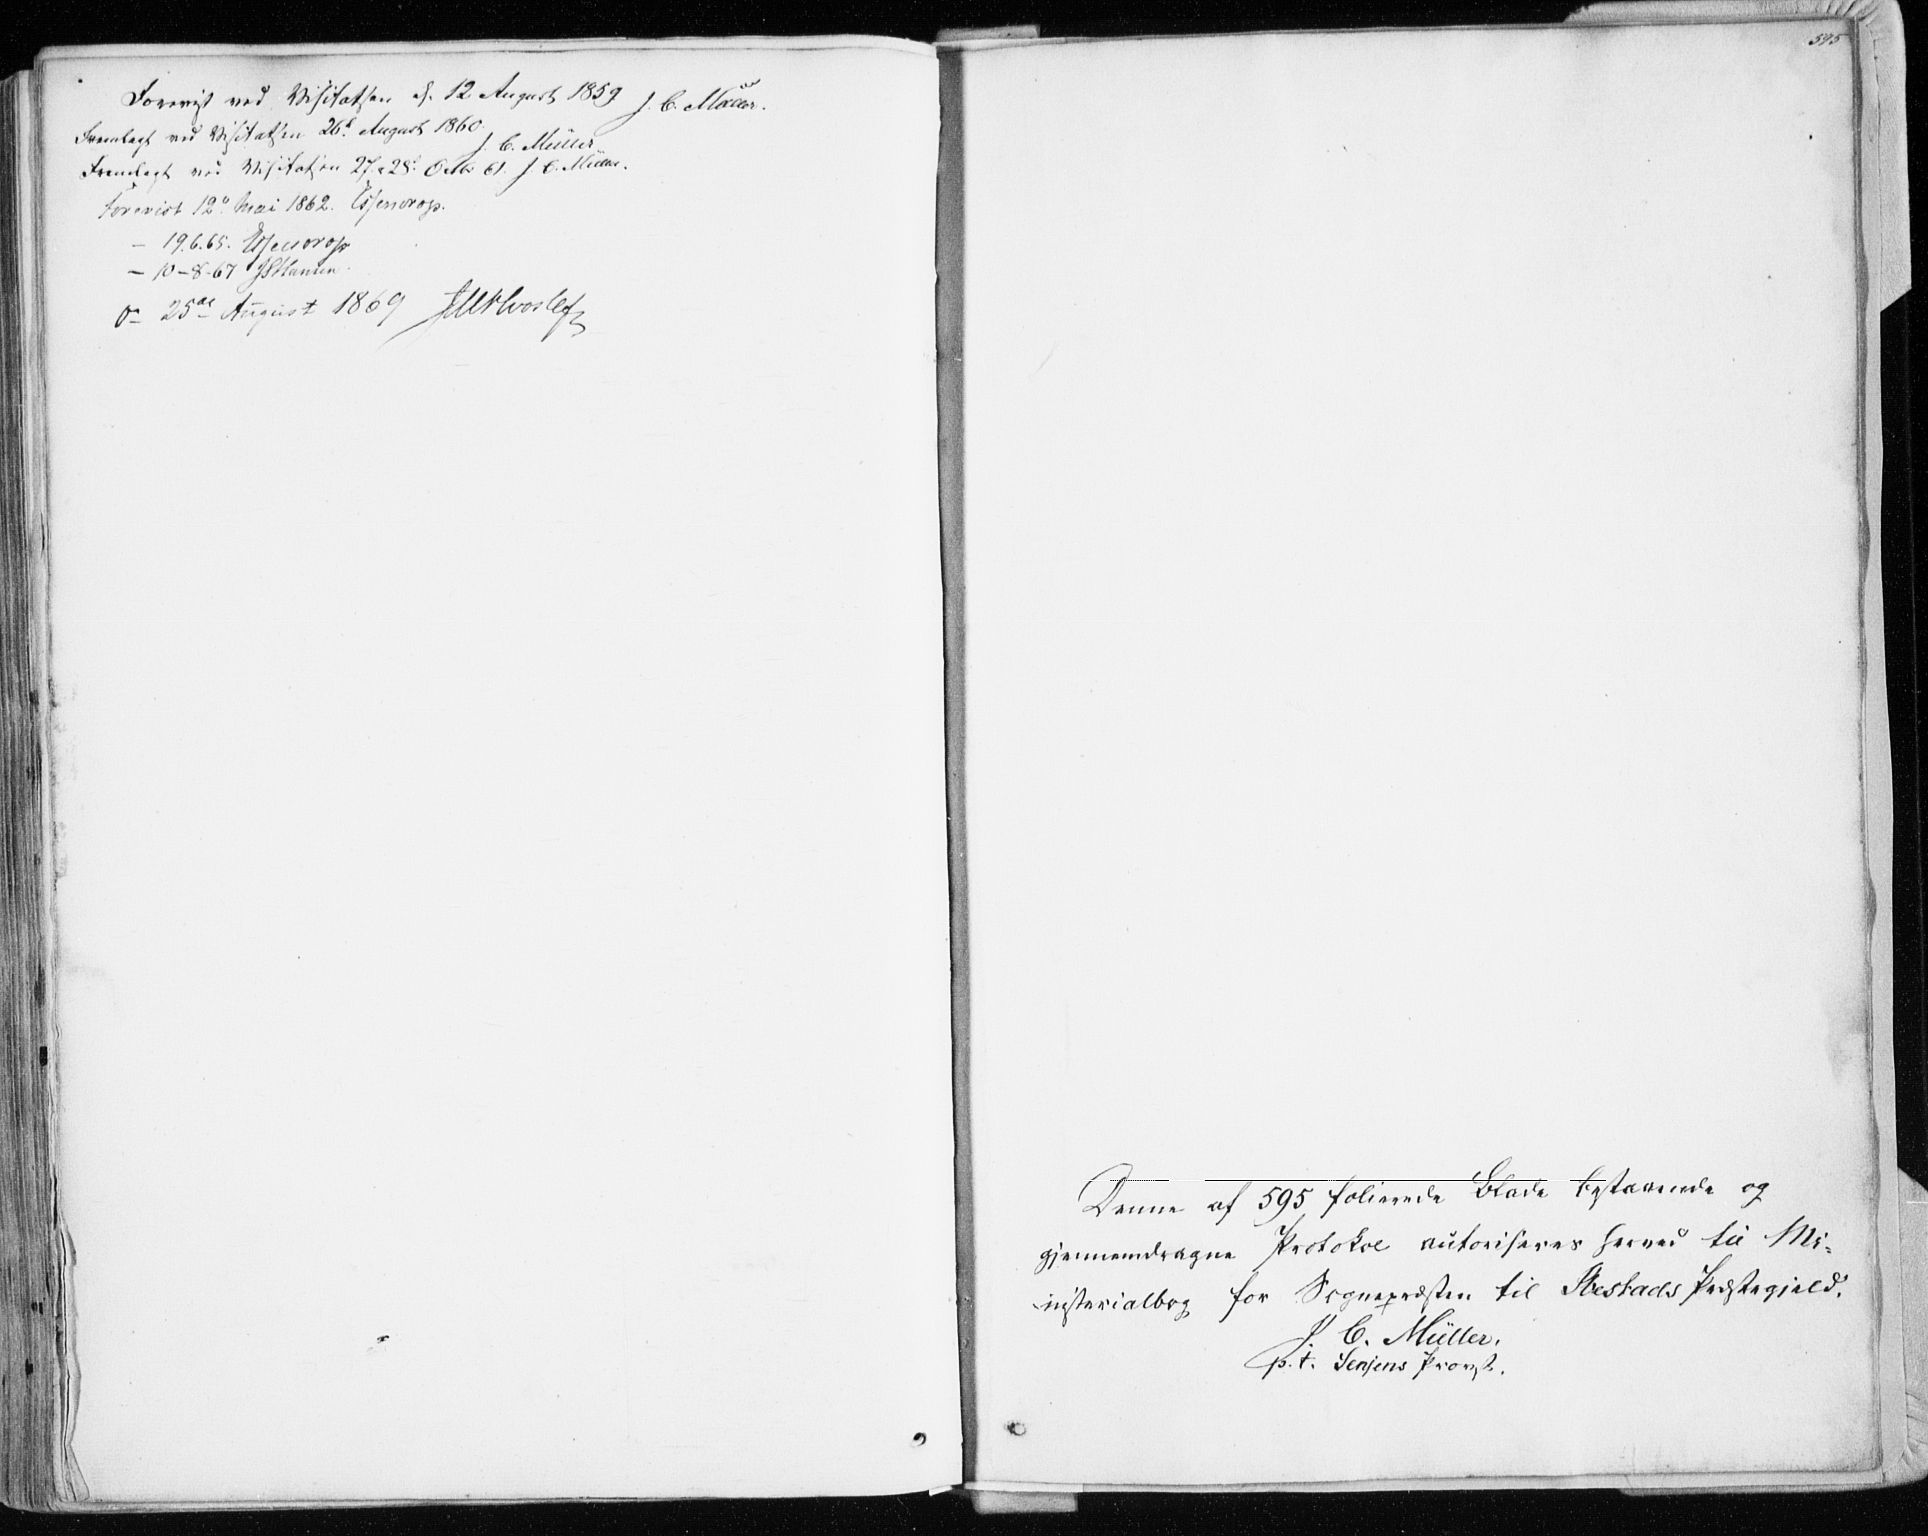 Forevist ved Visitatsen d. 12 August 1859 J. C. Müller.
Fremlagt ved Visitatsen 26d August 1860.
J. C. Müller
Fremlagt ved Visitatsen 27 & 28d Octbr 61. J. C. Müller.
Forevist 12te Mai 1862. Essendrop.
— 19.6.65. Essendrop
— 10-8-67 JSHansen.
do 25de August 1869 FWHvoslef
595
Denne af 595 folierede Blade bestaaende og
gjennemdragne Protokol autoriseres herved til Mi-
nisterialbog for Sognepræsten til Ibestads Præstegjeld.
J. C. Müller.
p. t. Senjens Provst.